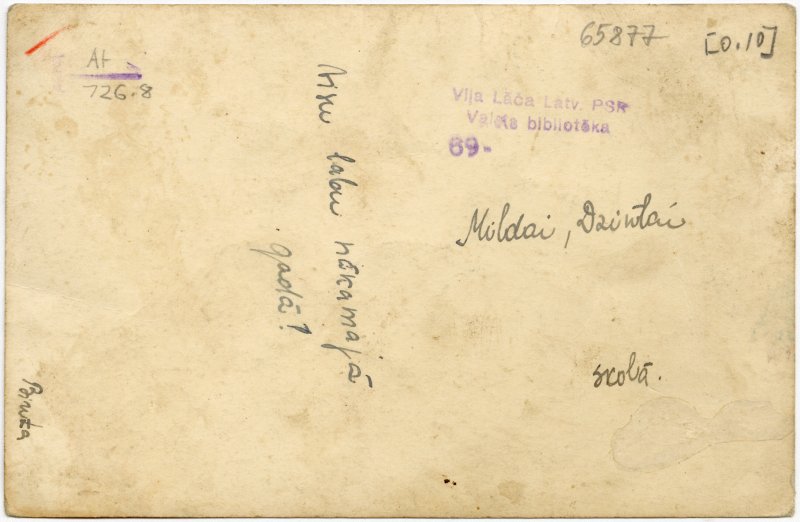 65877
[0.10]
At
726.8
Viļa Lāča Latv. PSR
Valsts bibliotēka
69-
Visu labu nākamajā
gadā!
Mildai, Dzintai
skolā.